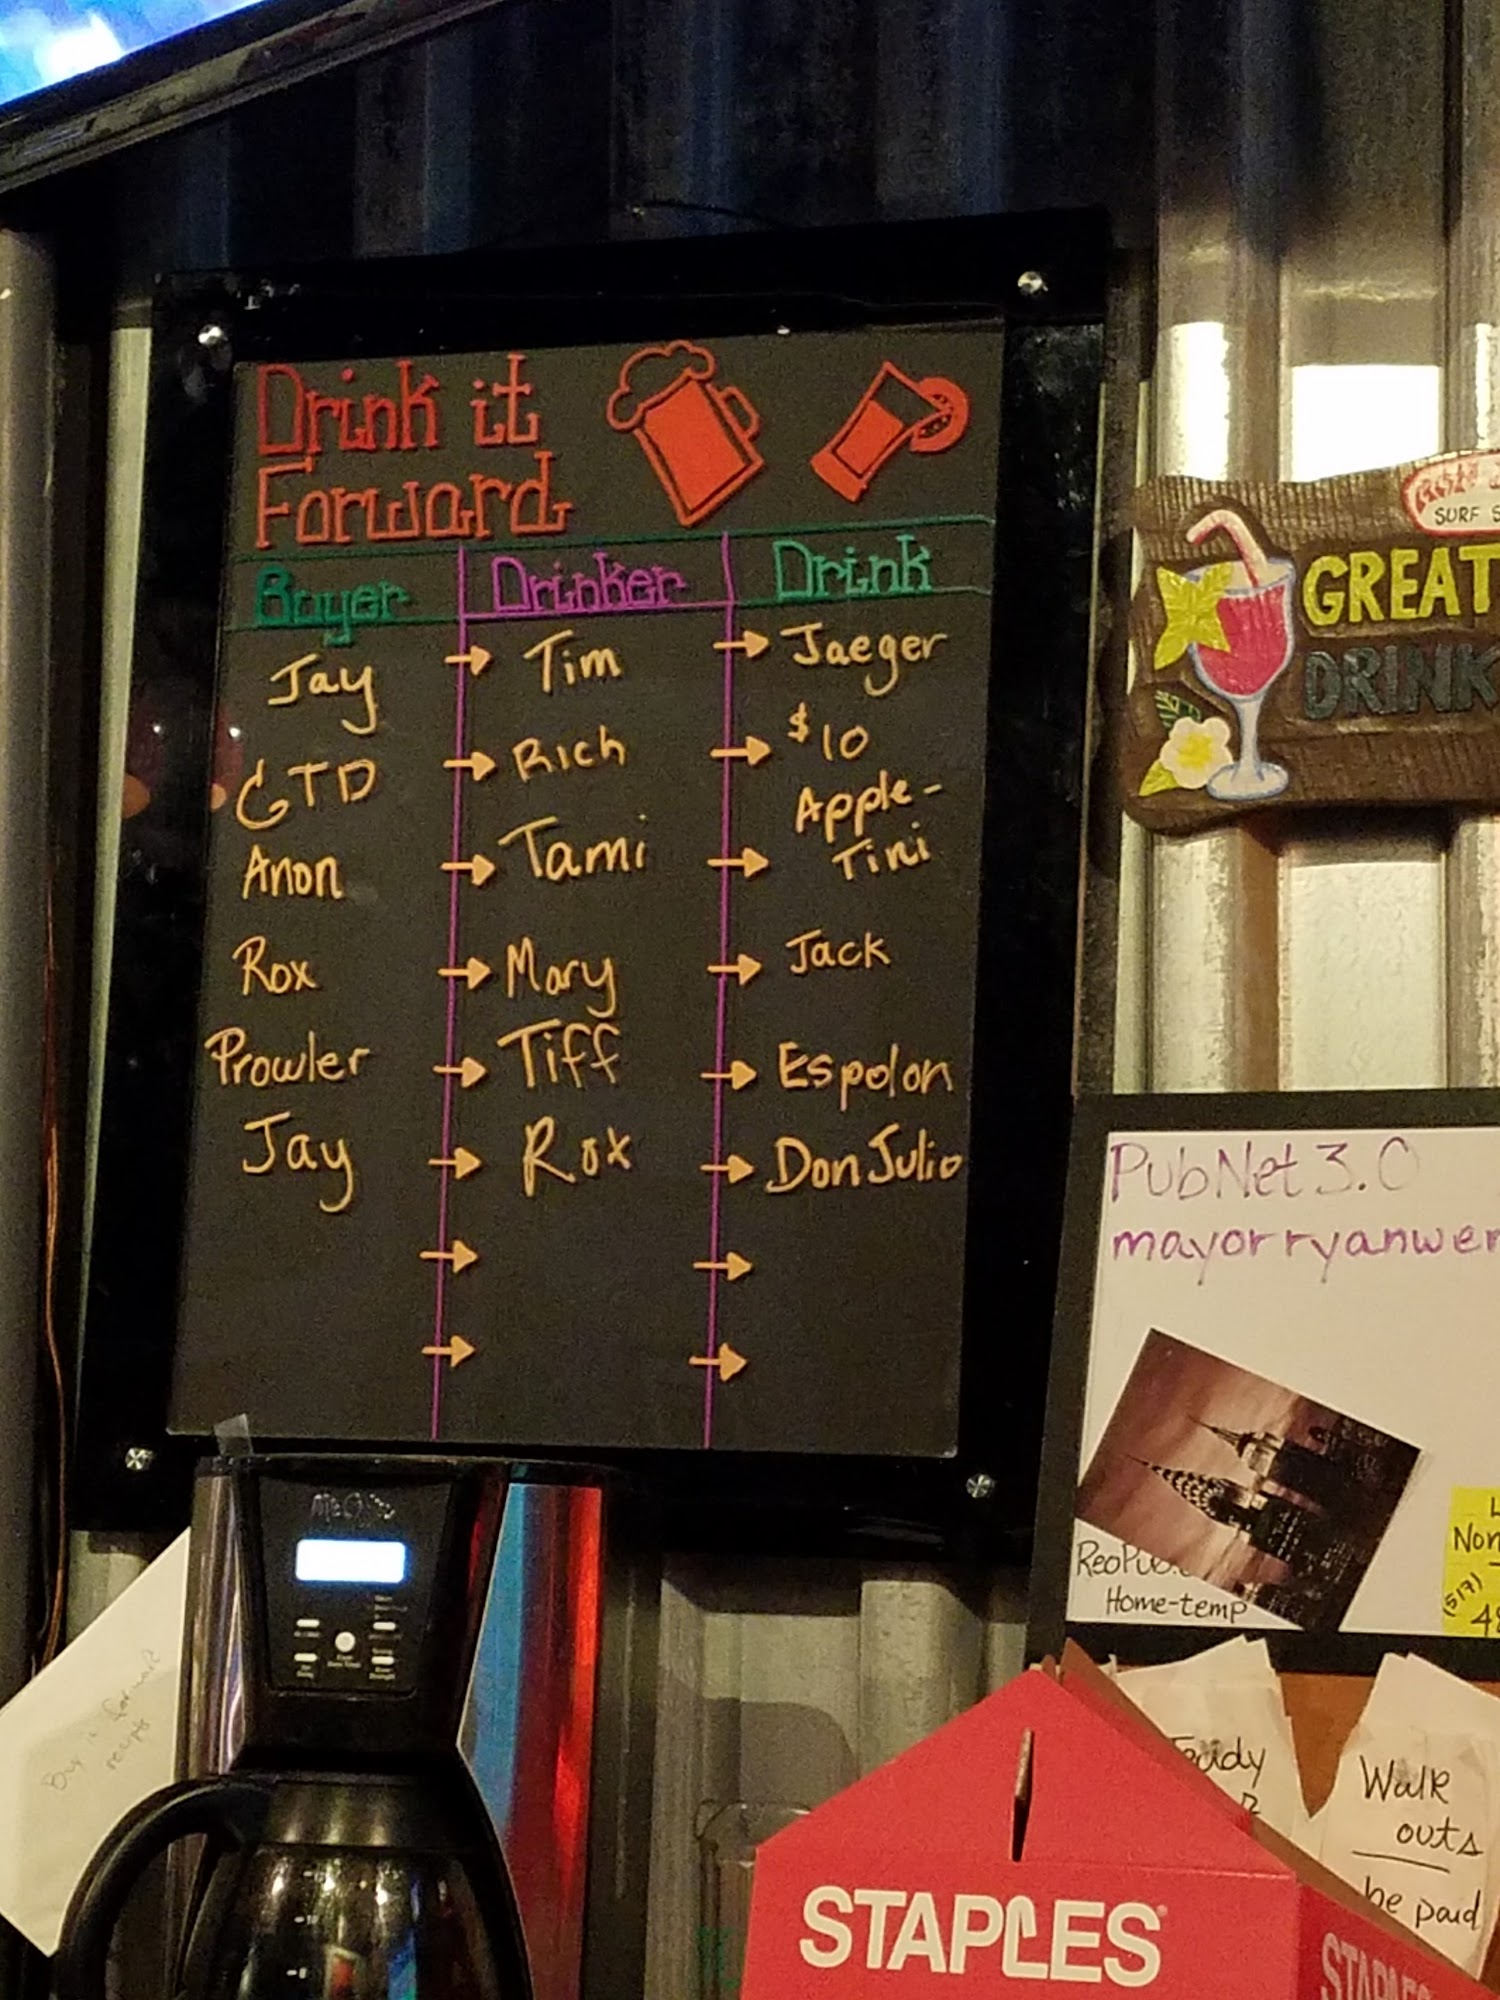 Drink it
Forward
Buyer Drinker Drink
Jay → Tim → Jaeger
GTD → Rich → $10
Anon → Tami → Apple-
Tini
Rox → Mary → Jack
Prowler → Tiff → Espolon
Jay → Rox → Don Julio
→ →
→ →
SURF
GREAT
DRINK
PubNet 3.0
mayorryanwer
Home-temp
Non
(517)
Walk
outs
be paid
STAPLES
STAPLES